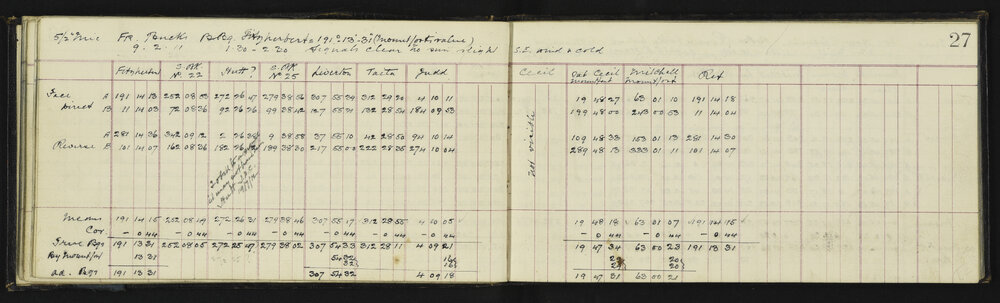 5½" Mic FR. Bucks B Bg. Fitzherbert = 191° 13' 31" (mount/ortn value) 27
9. 2. 11 1.30 - 2.30 Signals clear no sun slight S.E. wind & cold
Fitzherbert S. OK No 22 Hutt? S. OK No 25 Liverton Taeta Judd Cecil Dat Cecil Mount/ort Mitchell Mount/ort Ref
Face A 191 14 13 252 08 53 272 26 47 279 38 56 307 55 39 312 29 20 4 10 11 19 48 27 63 01 10 191 14 18
Direct B 11 14 03 72 08 36 92 26 26 99 38 42 127 55 21 132 28 54 184 09 53 199 48 00 243 00 53 11 14 04
A 281 14 36 342 09 12 2 26 38 9 38 58 37 55 10 42 28 50 94 10 14 109 48 33 153 01 13 281 14 30
Reverse B 101 14 07 162 08 36 182 26 12 189 38 30 217 55 00 222 28 35 274 10 04 289 48 13 333 01 11 101 14 07
Not visible
Means 191 14 15 252 08 49 272 26 31 279 38 46 307 55 17 312 28 55 4 10 05 19 48 18 63 01 07 191 14 15
Cor. - 0 44 - 0 44 - 0 44 - 0 44 - 0 44 - 0 44 - 0 44 - 0 44 - 0 44 - 0 44
True Bgs 191 13 31 252 08 05 272 25 47 279 38 02 307 54 33 312 28 11 4 09 21 19 47 34 63 00 23 191 13 31
By mount/ort 13 31 54 32 16 29 20
32 16 29 20
ad. Bgs 191 13 31 307 54 32 4 09 18 19 47 31 63 00 21